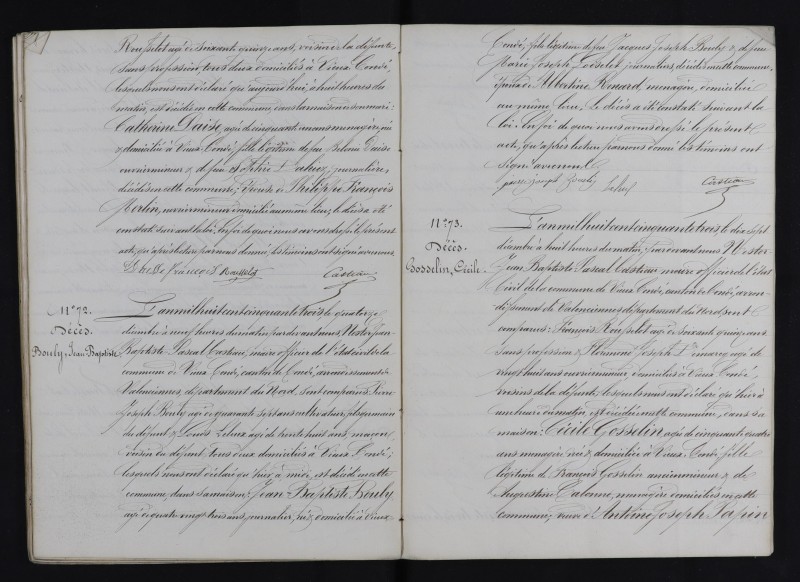 Rousselot agé de soixante quinze ans, voisin de la défunte,
sans profession, tous deux domiciliés à Vieux Condé,
lesquels nous ont déclaré qu'aujourd'hui, à huit heures du
matin, est décédée en cette commune, dans la maison de son mari:
Catherine Daise, agée de cinquante un ans ménagère, née
& domiciliée à Vieux Condé, fille légitime de feu Daise
ouvrier mineur & de feu journalière,
décédés en cette commune; épouse de Philippe François
Merlin, ouvrier mineur domicilié au même lieu; le décès a été
constaté suivant la loi. En foi de quoi nous avons dressé le présent
acte, qu'après lecture par nous donnée, les témoins ont signé avec nous.
françois Rousselot Castiau
N° 72.
Décès.
Bouly, Jean Baptiste
L'an mil huit cent cinquante trois, le quatorze
décembre à neuf heures du matin, par devant nous, Nestor Jean
Baptiste Pascal Castiau, maire officier de l'état civil de la
commune de Vieux Condé, canton de Condé, arrondissement de
Valenciennes, département du Nord, sont comparus: Pierre
Joseph Bouly agé de quarante sept ans cultivateur, fils germain
du défunt & Louis Leleux agé de trente huit ans, maçon,
voisin du défunt, tous deux domiciliés à Vieux Condé;
lesquels nous ont déclaré qu'hier, à midi, est décédé en cette
commune, dans sa maison: Jean Baptiste Bouly,
agé de quatre vingt trois ans, journalier, né & domicilié à Vieux
Condé, fils légitime de feu Jacques Joseph Bouly & de feu
Marie Joseph Loiselet, journaliers, décédés en cette commune,
époux d'Albertine Renard, ménagère, domiciliée
au même lieu. Le décès a été constaté suivant la
loi. En foi de quoi nous avons dressé le présent
acte, qu'après lecture par nous donnée les témoins ont
signé avec nous.
joseph Bouly Castiau
N° 73.
Décès.
Gosselin, Cécile.
L'an mil huit cent cinquante trois, le dix sept
décembre à huit heures du matin, par devant nous Nestor
Jean Baptiste Pascal Castiau maire officier de l'état
civil de la commune de Vieux Condé, canton de Condé, arron-
dissement de Valenciennes département du Nord, sont
comparus: François Rousselot agé de soixante quinze ans
sans profession & Florimond Joseph agé de
vingt huit ans ouvrier mineur, domiciliés à Vieux Condé,
voisins de la défunte, lesquels nous ont déclaré qu'hier à
une heure du matin, est décédée en cette commune, dans sa
maison: Cécile Gosselin, agée de cinquante quatre
ans ménagère, née & domiciliée à Vieux Condé fille
légitime de François Gosselin ancien mineur & de
Augustine Calonne, ménagère domiciliés en cette
commune, veuve d'Antoine Joseph Sapin